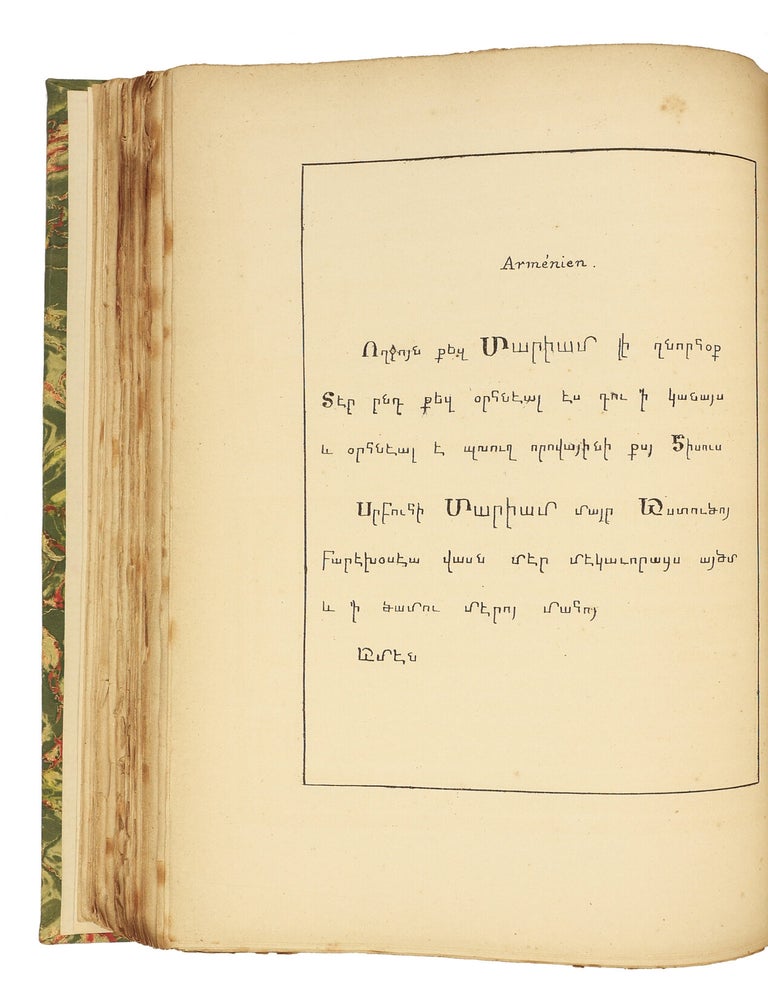 Arménien.
Ողջոյն քեզ Մարիամ լի շնորհօք
Տէր ընդ քեզ օրհնեալ ես դու ի կանայս
և օրհնեալ է պտուղ որովայինի քոյ Յիսուս
Սրբուհի Մարիամ մայր Աստուծոյ
բարեխօսեա վասն մեր մեղաւորացս այժմ
և ի ժամու մերոյ մահոյ
Ամէն